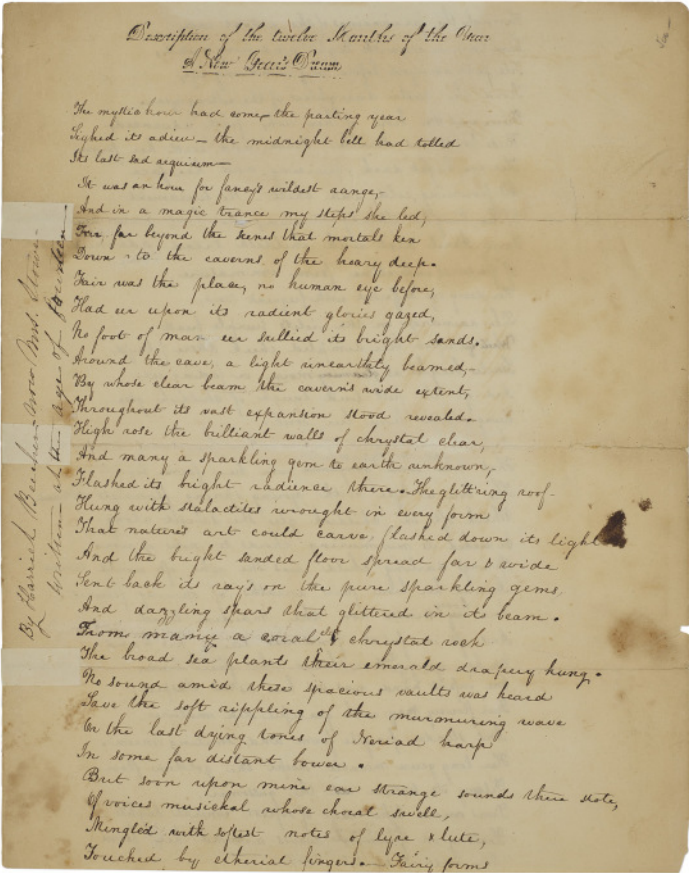 Description of the twelve Months of the Year
A New Year's Dream
The mystic hour had come, the parting year
Sighed its adieu — the midnight bell had tolled
Its last sad requiem —
It was an hour for fancy's wildest range,-
And in a magic trance my steps she led,
Far, far beyond the scenes that mortals ken
Down to the caverns of the heavy deep.
Fair was the place, no human eye before,
Had eer upon its radient glories gazed,
No foot of man eer sullied its bright sands.
Around the cave, a light unearthly beamed,-
By whose clear beam the cavern's wide extent,
Throughout its vast expansion stood revealed.
High rose the brilliant walls of chrystal clear,
And many a sparkling gem to earth unknown,-
Flashed its bright radience there. The glittring roof-
Hung with stalactites wrought in every form
That nature's art could carve, flashed down its light
And the bright sanded floor spread far & wide
Sent back its ray's on the pure sparkling gems
And dazzling spars that glittered in its beam.
From many a coral chrystal rock
The broad sea plants their emerald drapery hung.
No sound amid these spacious vaults was heard
Save the soft rippling of the murmuring wave
Or the last dying tones of Neriad harp
In some far distant bower.
But soon upon mine ear strange sounds there stole,
Of voices musickal whose choral swell,
Mingled with softest notes of lyre & lute,
Touched by etherial fingers — Fairy forms
By Harriet Beecher now Mrs. Stowe-
written at the age of fourteen